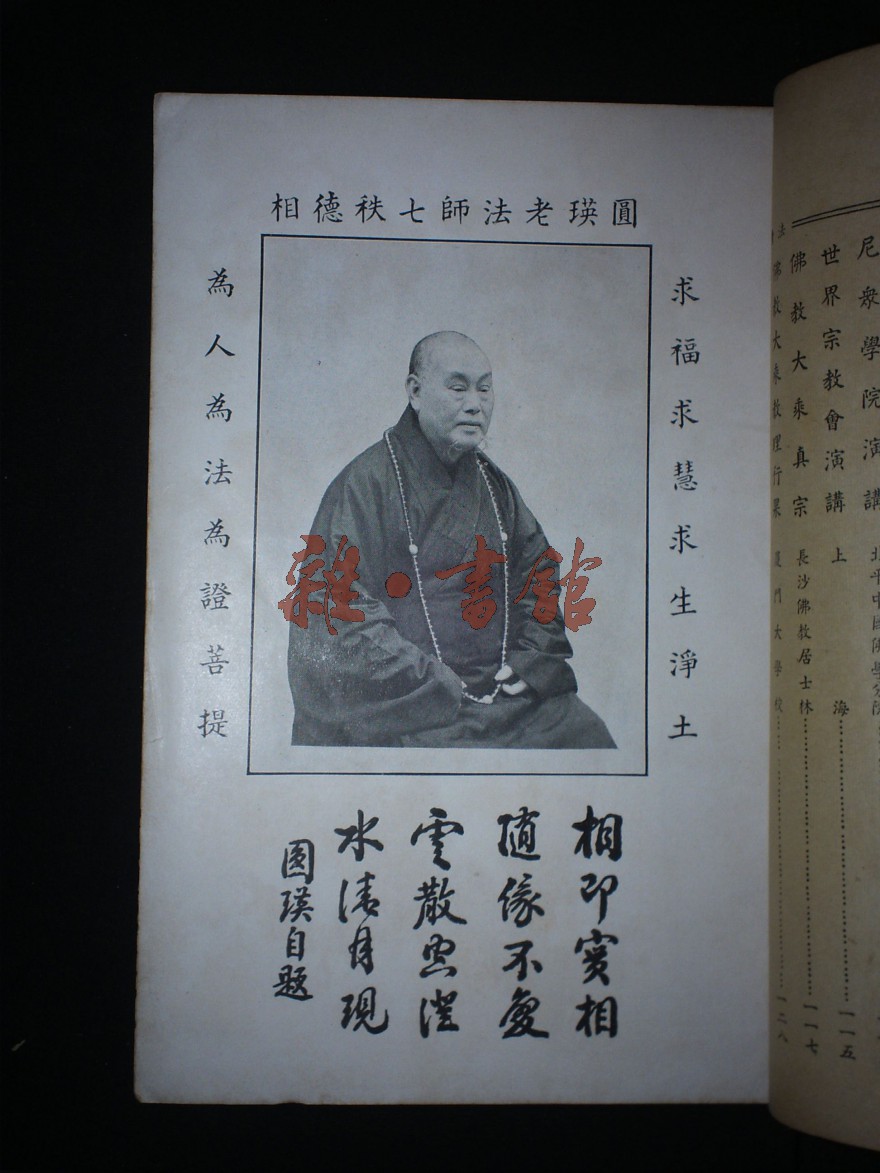 圓瑛老法師七秩德相
求福求慧求生淨土
為人為法為證菩提
雜·書館
相即實相
隨緣不變
雲散空澄
水清月現
圓瑛自題
尼眾學院演講
世界宗教會演講 上海……一一五
佛教大乘真宗 長沙佛教居士林……一一七
佛教大乘教理行果 廈門大學校……一二八